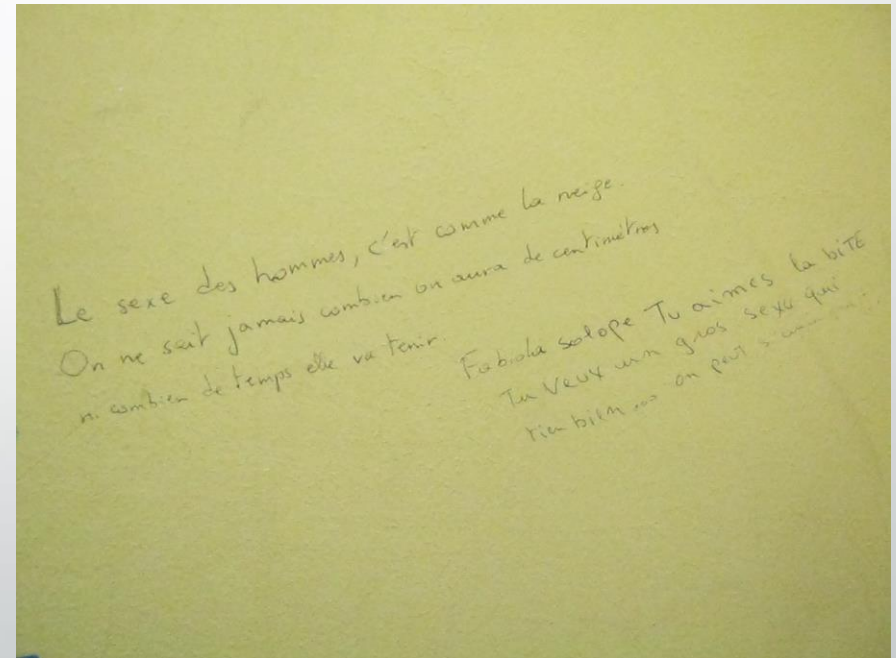 Le sexe des hommes, c'est comme la neige.
On ne sait jamais combien on aura de centimètres
ni combien de temps elle va tenir.
Fabiola salope Tu aimes la bite
Tu veux un gros sexe qui
tien bien ... on peut